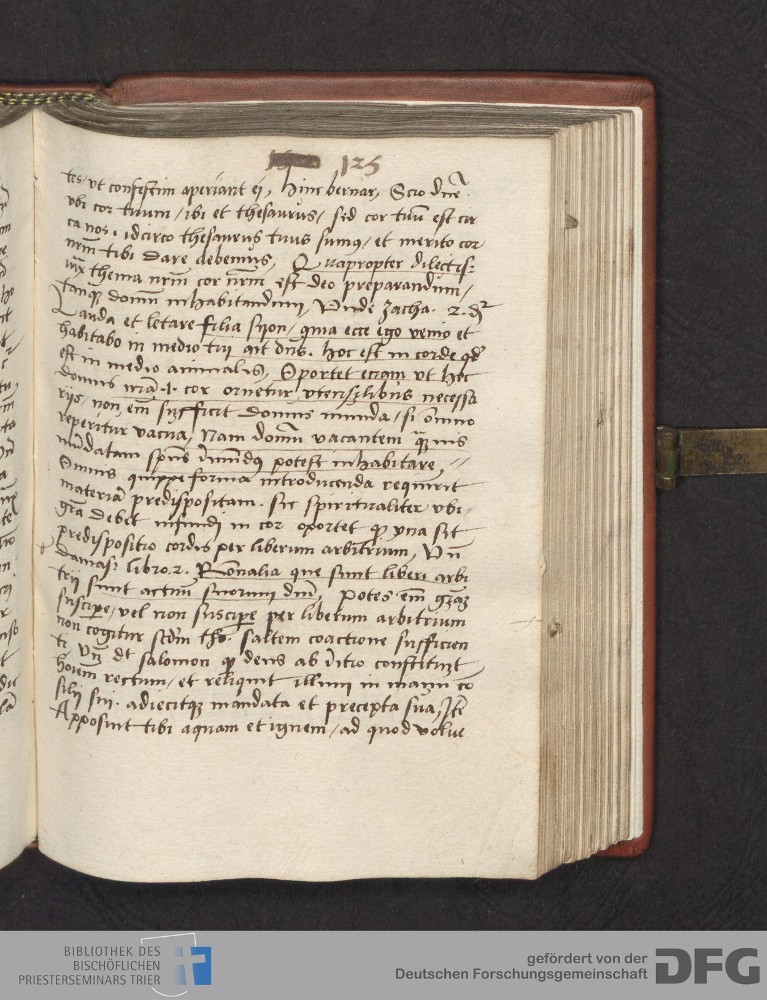 125
tes, ut confestim aperiant ei, Hinc bernar, Scio dne
ubi cor tuum / ibi et thesaurus / sed cor tuū est cir
ca nos, idcirco thesaurus tuus sumus / et merito cor
nrm tibi dare debemus, Quapropter dilectis:
thema nrm cor nrm est deo preparandum /
tanq domū inhabitandum, Unde zacha. 2.
Lauda et letare filia syon / quia ecce ego venio et
habitabo in medio tui ait dns. hoc est in corde qd
est in medio animalis, Oportet eciam ut hec
domus .i. cor ornetur utensilibus necessa
rijs, non em sufficit domus munda / si omnino
reperitur vacua, Nam domū vacantem quis
mūdatam spūs potest inhabitare,
Omnis quippe forma introducenda requirit
materiā predispositam. sic spiritualiter ubi
gra debet infundi in cor oportet q una sit
predispositio cordis per liberum arbitrium, Un
damas: libro. 2. Ronalia que sunt liberi arbi
trij sunt actuū suorum dni, Potes em graz
suscipe / vel non suscipe per liberum arbitrium
non cogitur scdm tho. saltem coactione sufficien
ti Unz dt salomon q deus ab initio constituit
hoiem rectum / et reliquit illum in manu co
silij sui. adiecitqz mandata et precepta sua,
Apposuit tibi aquam et ignem / ad quod volue
BIBLIOTHEK DES
BISCHÖFLICHEN
PRIESTERSEMINARS TRIER
gefördert von der
Deutschen Forschungsgemeinschaft DFG